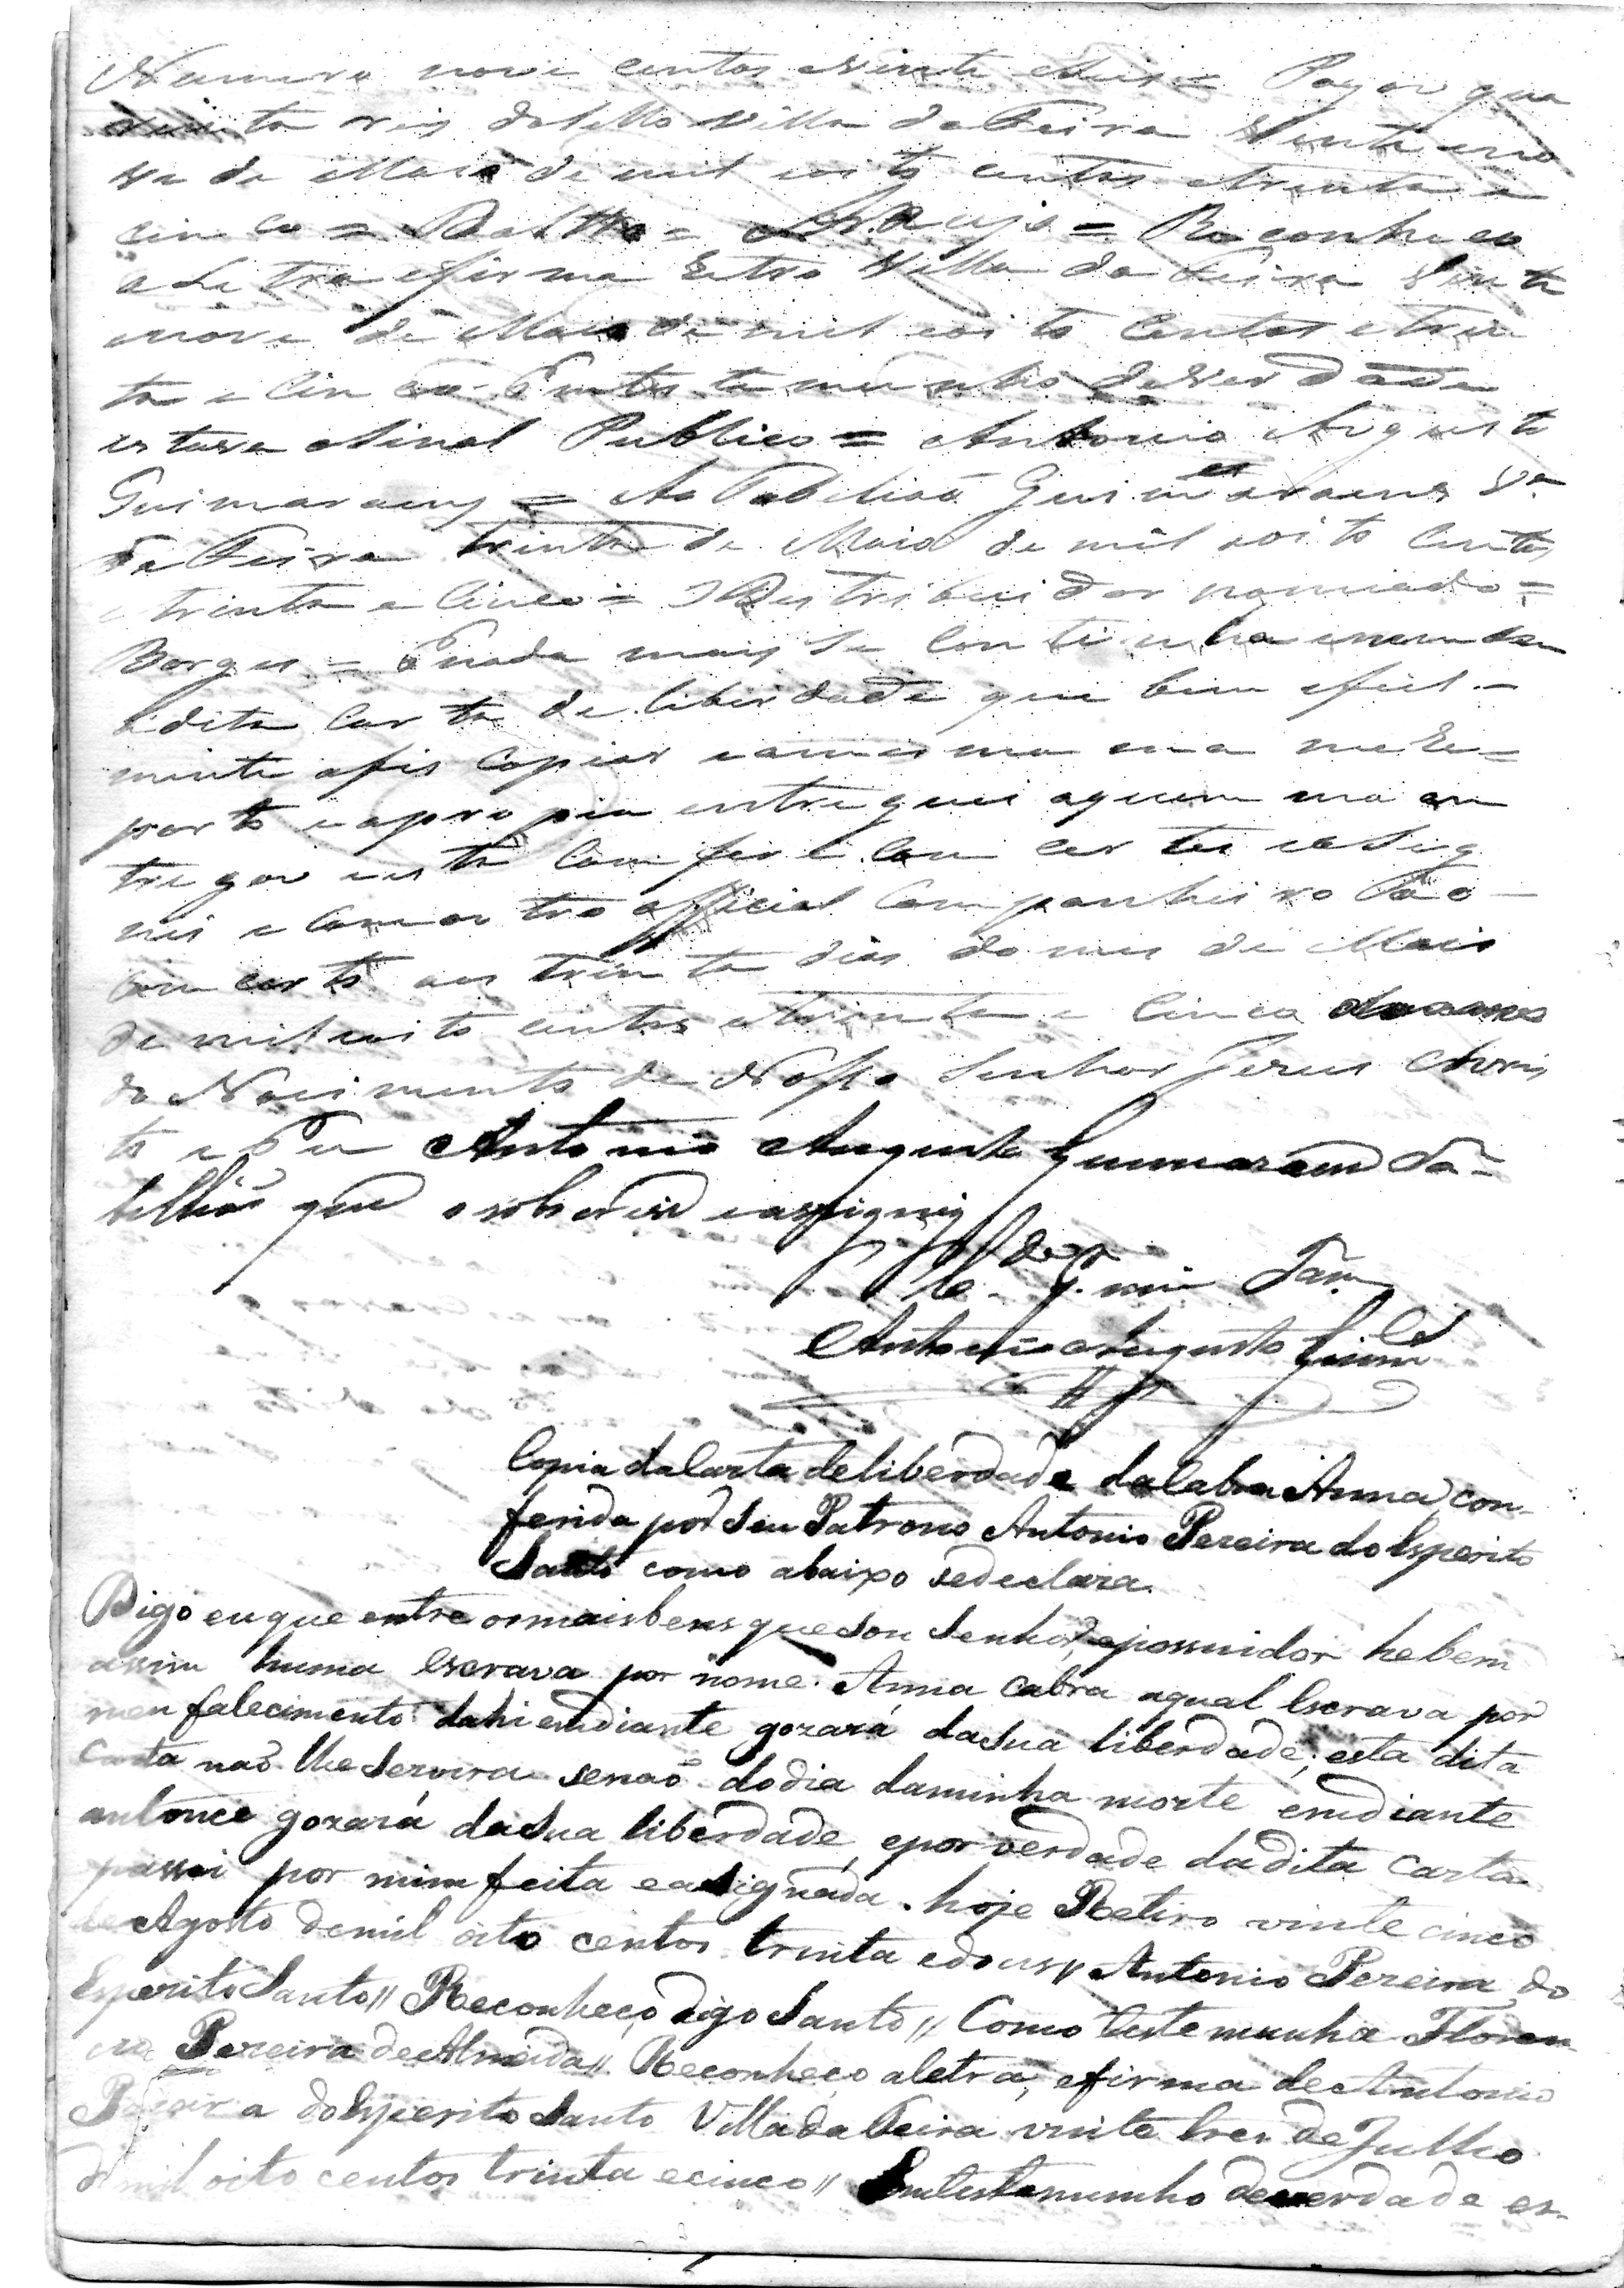 Numero nove centos e vinte e seis = Pagou qua
renta reis do sello Villa da Feira Vinte eno
ve de Maio de mil eoito centos etrinta e
cinco = Bastos = Araujo = Reconheco
a Letra efirma Retro Villa da Feira Vinte
enove de Maio de mil eoito Centos etrin
ta e Cinco Emtestemunho deVerdade
estava oSinal Publico = Antonio Augusto
Guimaraens = Ao Tabelião Guimaraens Va
da Feira trinta de Maio de mil eoito Centos
etrinta e Cinco = O Destribuidor nomiado =
Borges = Enada mais se Continha em a
dita Carta de liberdade que bem efiel-
mente afis Copiar eames ma em a me re-
porto eapropia entreguei aquem ma en
tregou esta Comferi Com certei eAsig
nei e Com outro official Companheiro Ao
Com certo aos trinta dias do mes de Maio
de mil eoito centos etrinta e Cinco do anno
do Nacimento de Nosso Senhor Jezus Chris
to e Eu Antonio Augusto Guimaraens Ta-
bellião que o sobscrevi eassignei
Antonio Augusto Guimes
Copia daCarta deliberdade daCabra Anna, con-
ferida por Seu Patrono Antonio Pereira doEsperito
Santo como abaixo sedeclara.
Digo euque entre osmaisbens queSou Senhor, epossuidor hebem
assim huma Escrava por nome. Anna Cabra aqual Escrava por
meu falecimento dahi emdiante gozará daSua liberdade; esta dita
Carta naõ lheServira senaõ dodia daminha morte emdiante
entonce gozará daSua liberdade, epor verdade dadita Carta
passei por mim feita eaSignada. hoje Retiro vinte cinco
de Agosto demil oito centos trinta edous // Antonio Pereira do
EsperitoSanto // Reconheço, digo Santo // Como testemunha Floren
cio Pereira deAlmeida // Reconheço aletra, efirma deAntonio
Pereira doEsperito Santo Villa da Feira vinte tres de Julho
de mil oito centos trinta ecinco // Emtestemunho deverdade es-